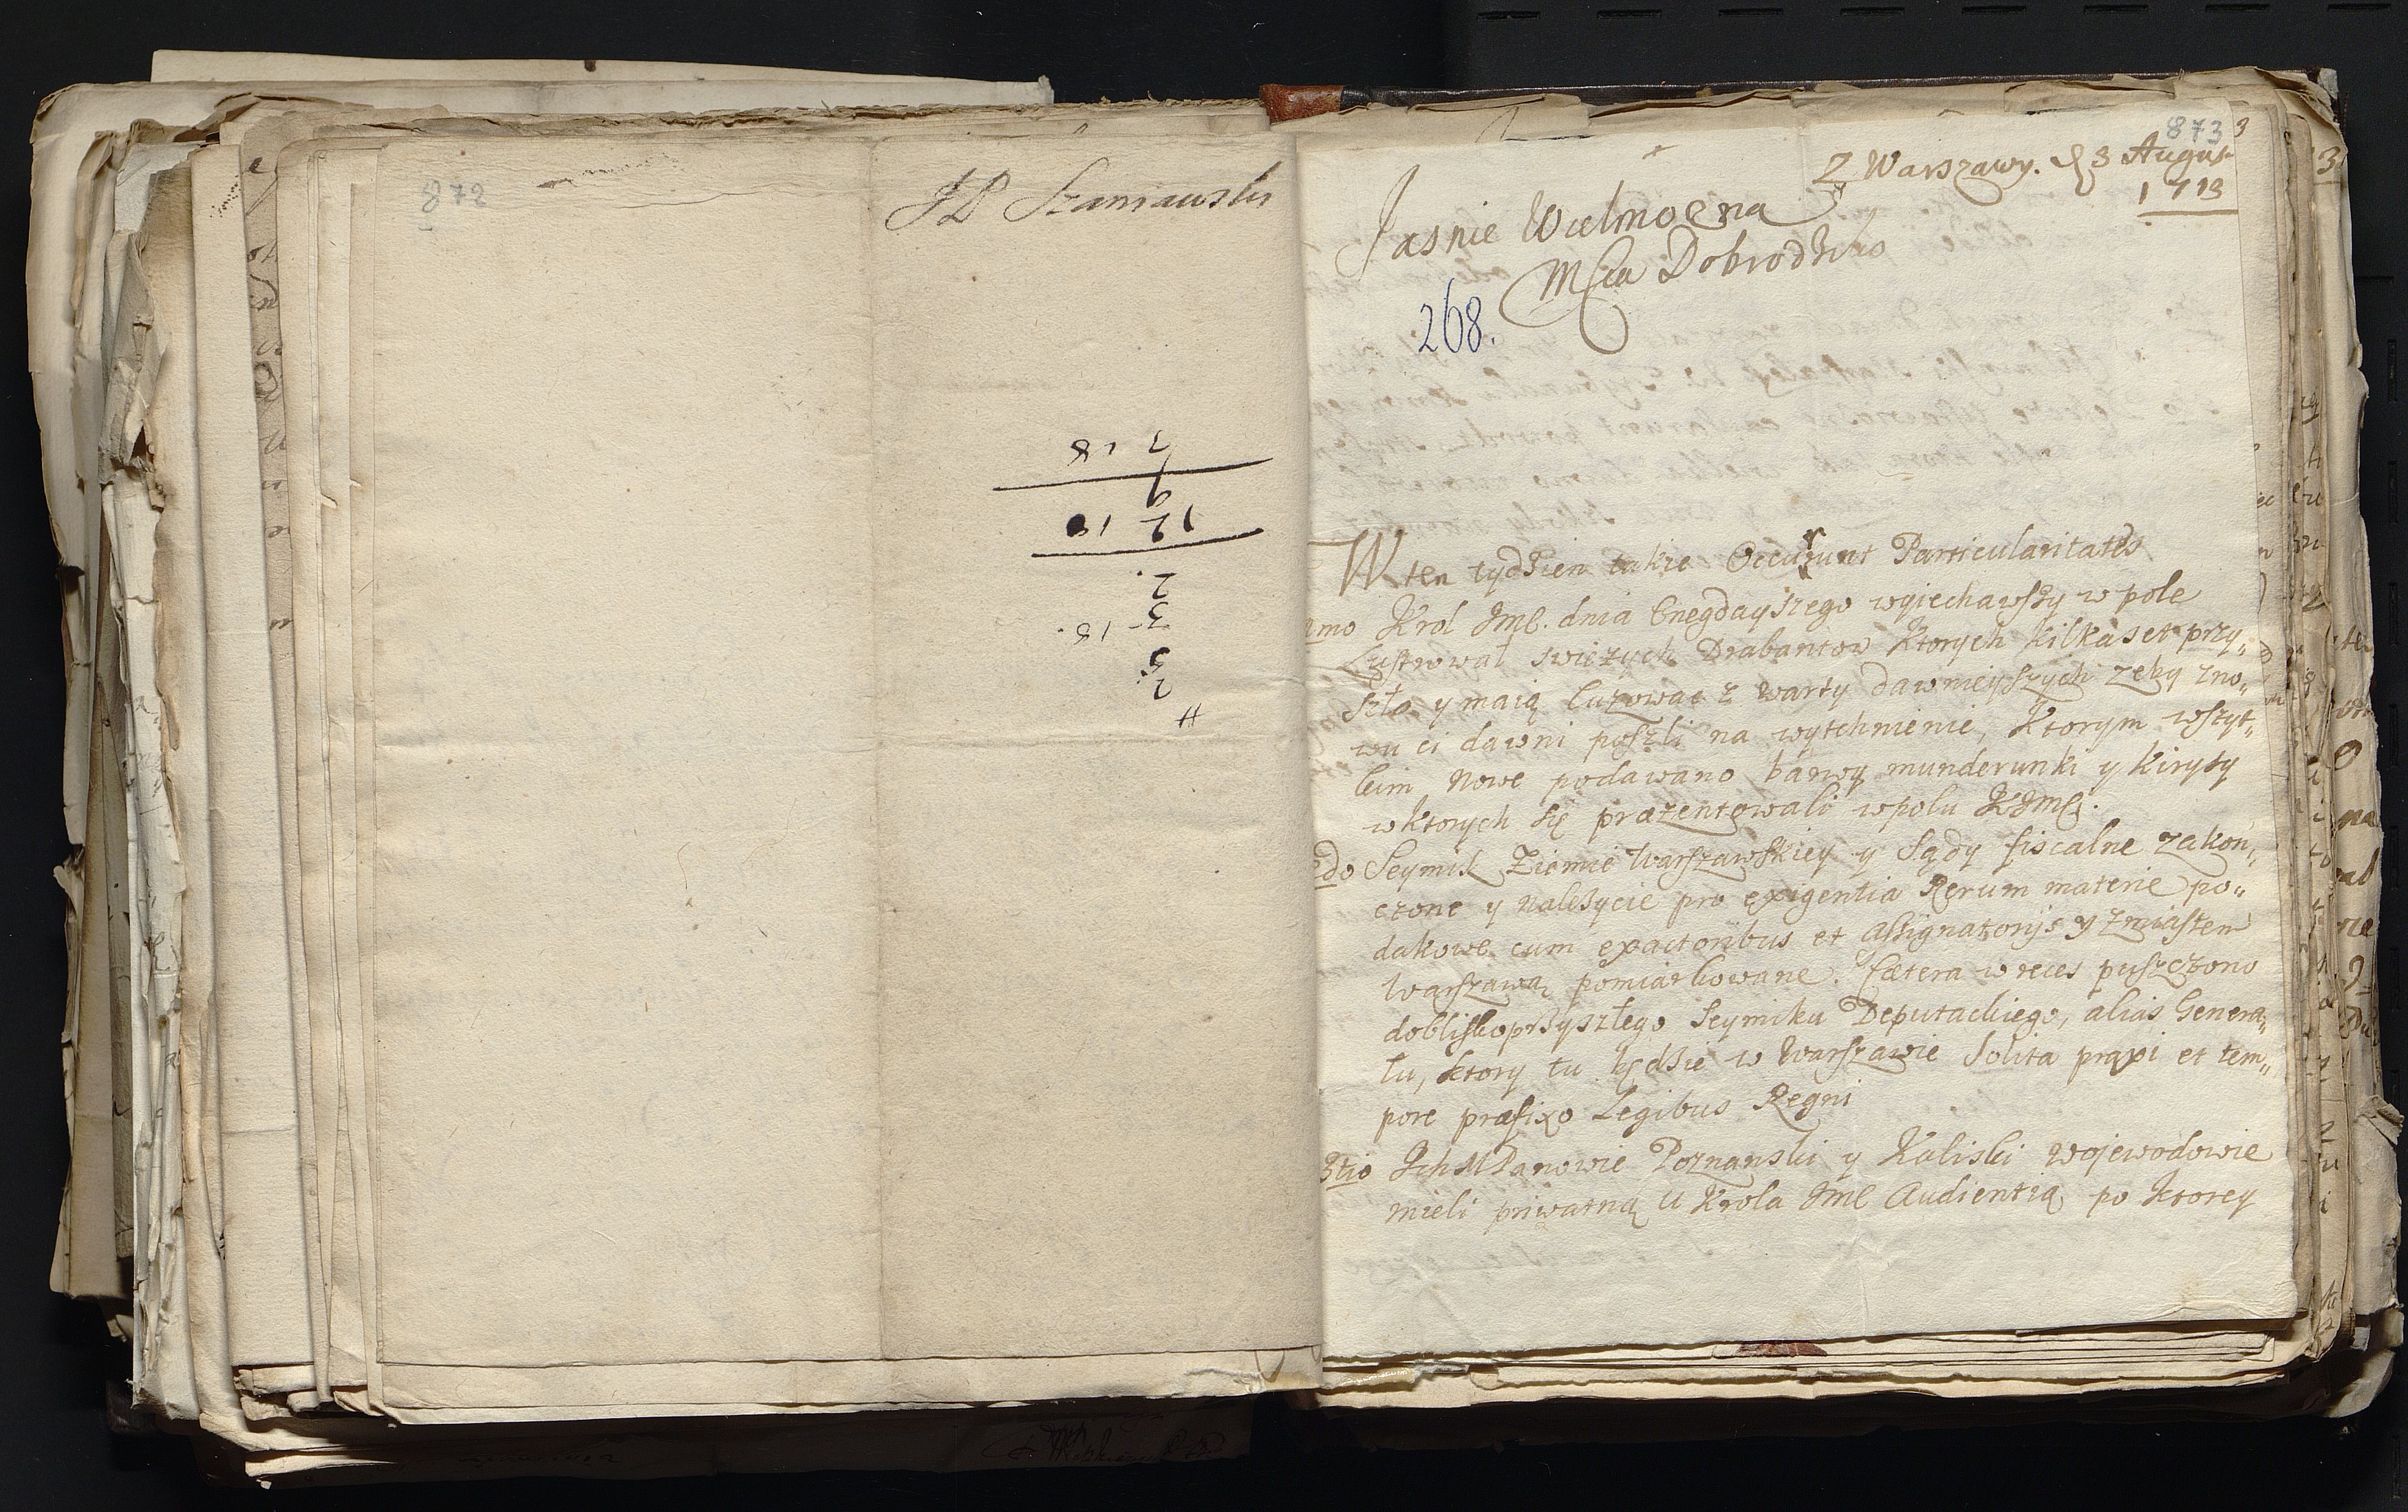 872
JP Szaniawski
#
2
3.
3 18.
2.
12 18
9
2 18
873
Z Warszawy. d 3 Augus
1713
Jasnie Wielmozna
Mcia Dobrodziko
268.
W ten tydzien takie Occurrunt Particularitates
1mo Krol Jmc. dnia Onegdayszego wyiechawszy w pole
Lustrował swiezych Drabantow Ktorych kilkaset przy„
szło y maią luzowac z warty dawnieyszych zeby zno„
wu ci dawni poszli na wytchnienie, Ktorym wszyt„
kim nowe podawano barwy munderunki y kirysy
w ktorych się præzentowali w polu KJmci.
2do Seymik Ziemie Warszawskiey y Sądy fiscalne zakon„
czone y nalezycie pro exigentia Rerum materie po„
dakowe cum exactoribus et assignatorijs y z miastem
Warszawą pomiarkowane. Cætera w reces puszczono
do blisko przyszłego Seymiku Deputackiego, alias Genera„
łu, ktory tu będzie w Warszawie Solita praxi et tem„
pore præfixo Legibus Regni
3tio Ich MPanowie Poznanski y Kaliski wojewodowie
mieli priwatną U Krola Jmc Audientią po ktorey